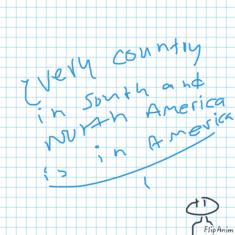 Every country
in South and
North America
is in America
FlipAnim